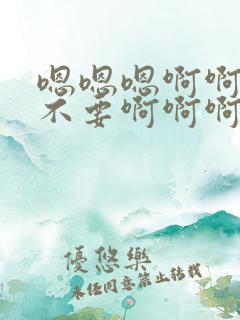 嗯嗯嗯啊啊
不要啊啊啊
優悠樂
未经同意禁止转载